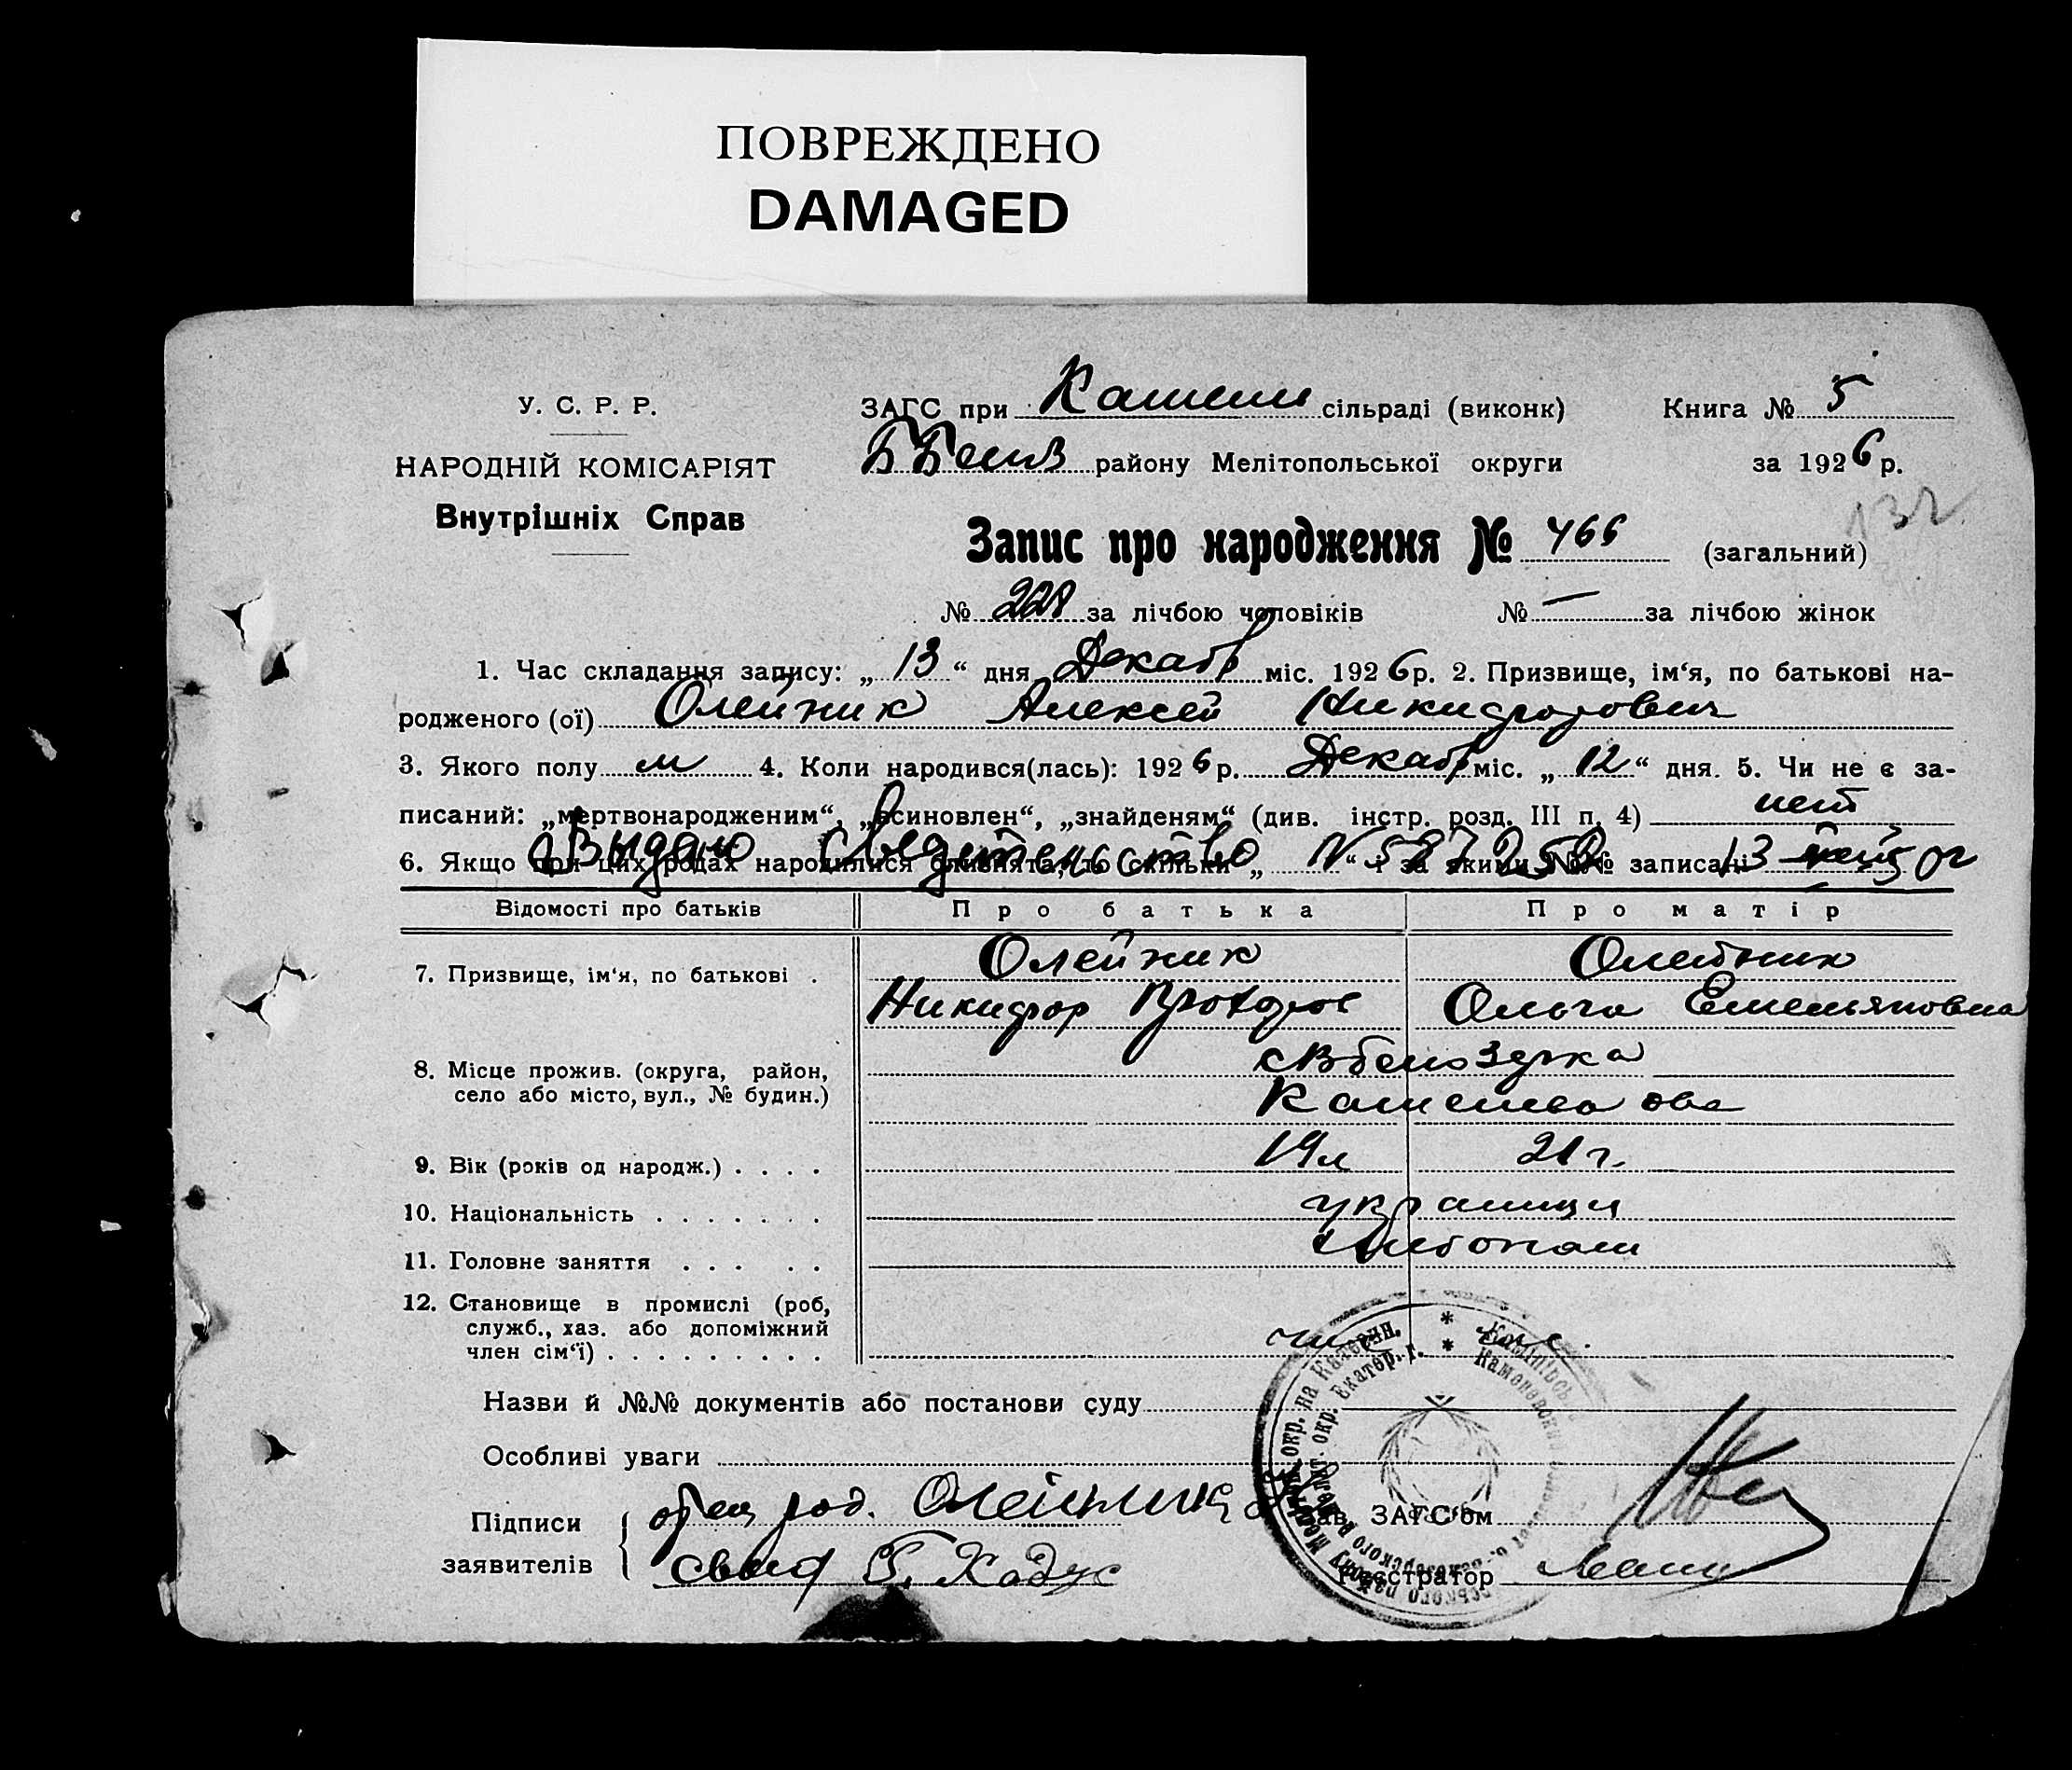 ПОВРЕЖДЕНО
DAMAGED
У. С. Р. Р.
НАРОДНІЙ КОМІСАРІЯТ
Внутрішніх Справ
ЗАГС при Камени сільраді (виконк) Книга № 5
ББелоз району Мелітопольської округи за 1926 р.
132
Запис про народження № 466 (загальний)
№ 228 за лічбою чоловіків № — за лічбою жінок
1. Час складання запису: „13“ дня Декабр міс. 1926 р. 2. Призвище, ім‘я, по батькові на-
родженого (ої) Олейник Алексей Никифорович
3. Якого полу м 4. Коли народився(лась): 1926 р. Декабр міс. „12“ дня. 5. Чи не є за-
писаний: „мертвонародженим“, „всиновлен“, „знайденям“ (див. інстр. розд. III п. 4) нет
Выдано свидетельство N 587252 13 50г
6. Якщо при цих родах народилися близнята, то скільки „ “ і за якими №№ записані
Відомості про батьків Про батька Про матір
7. Призвище, ім‘я, по батькові . Олейник Олейник
Никифор Прохоров Ольга Емельяновна
8. Місце прожив. (округа, район,
село або місто, вул., № будин.)
Белозерка
9. Вік (років од народж.) . . . . 19л 21г.
10. Національність . . . . . . . украинци
11. Головне заняття . . . . . хлебопаш
12. Становище в промислі (роб,
служб., хаз. або допоміжний
член сім‘ї) . . . . . . . . .
Назви й №№ документів або постанови суду
Особливі уваги
Підписи
заявителів
отец род. Олейник
свид Е. Кадус
Зав. ЗАГС‘ом
Реєстратор